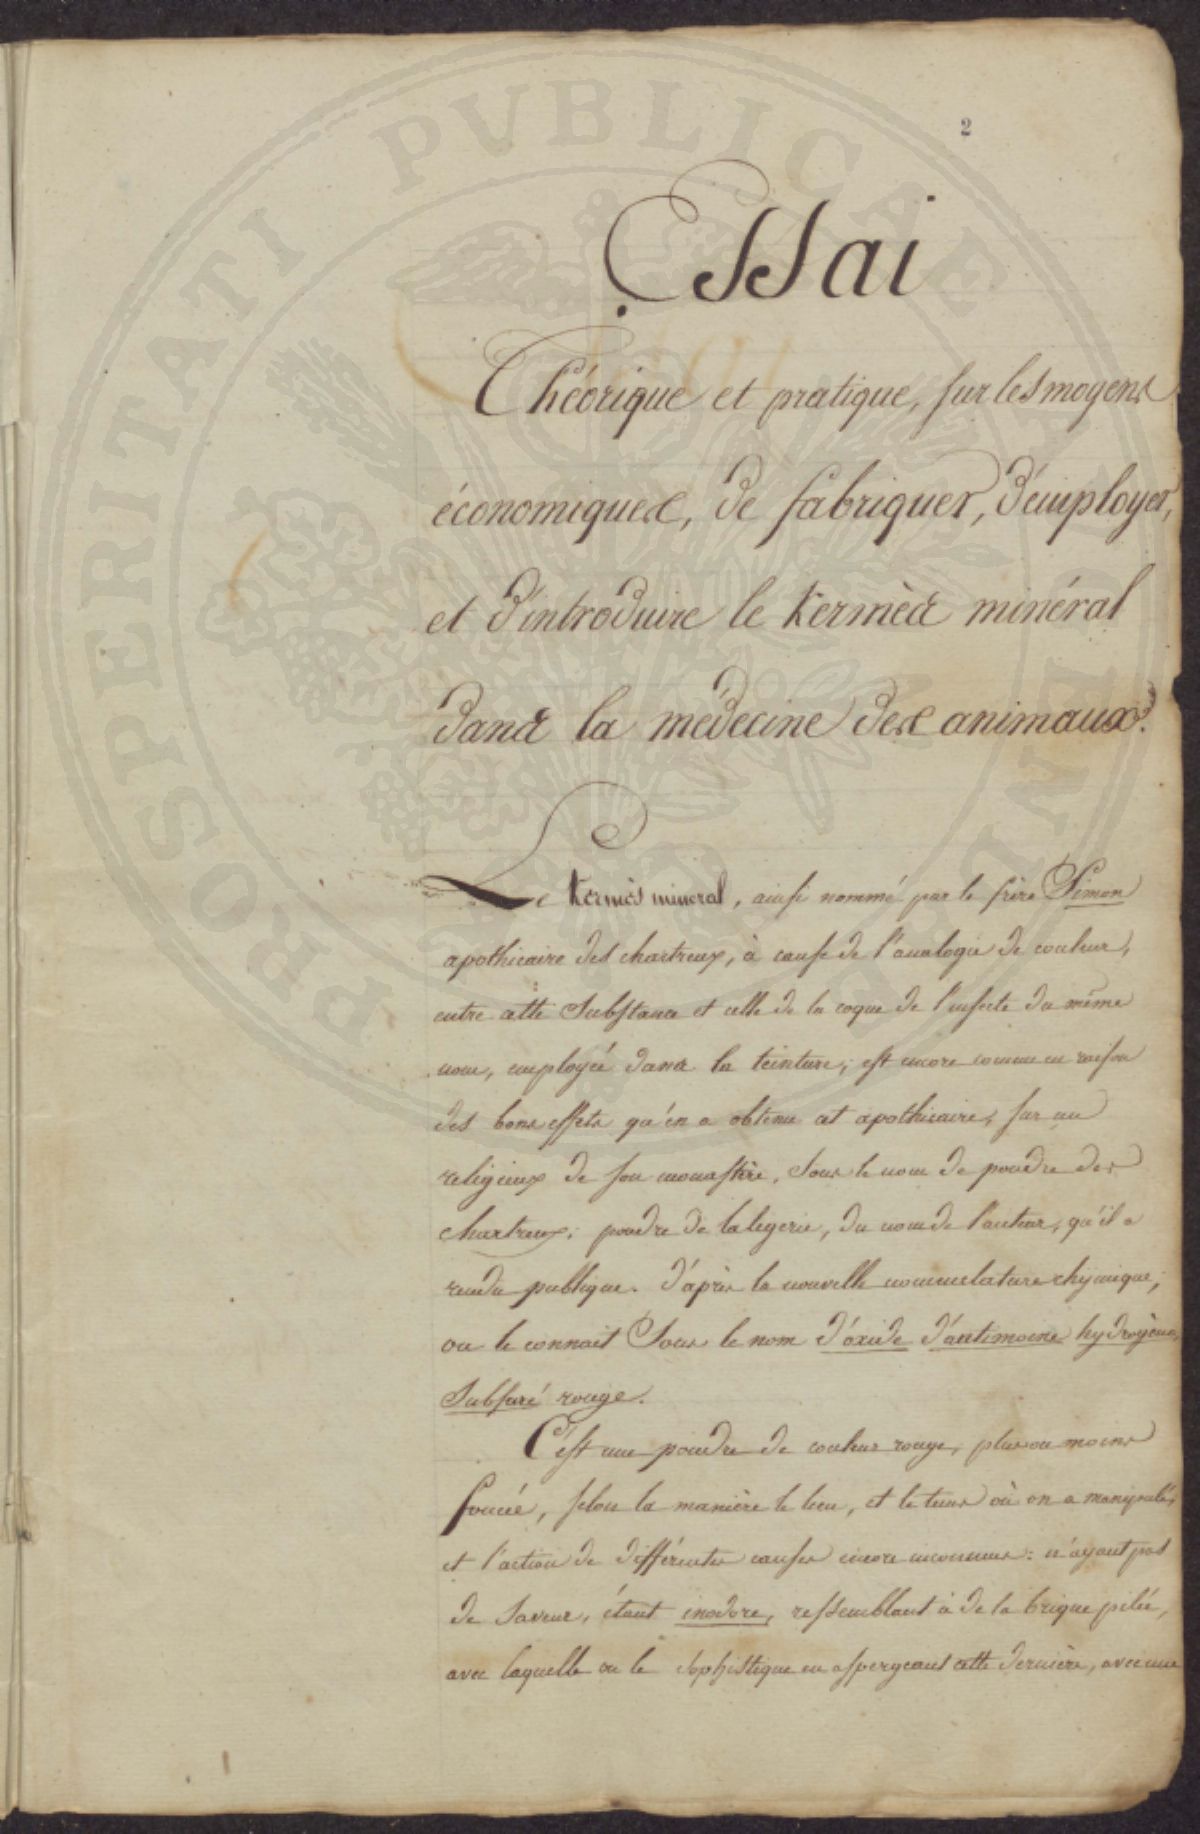 2
Essai
Théorique et pratique, sur les moyens
économiques, de fabriquer, d'employer,
et d'introduire le Kermès minéral
dans la médecine des animaux.
Le Kermès mineral, ainsi nommé par le frère Simon
apothicaire des chartreux, à cause de l'analogie de couleur,
entre cette Substance et celle de la coque de l'insecte du même
nom, employée dans la teinture; est encore connu en raison
des bons effets qu'en a obtenu cet apothicaire, sur un
religieux de son monastère, Sous le nom de poudre des
chartreux; poudre de la legerie, du nom de l'auteur, qu'il a
rendu publique. d'après la nouvelle nommenclature chymique,
on le connait Sous le nom d'oxide d'antimoine hydrogèno,
Sulfuré rouge.
C'est une poudre de couleur rouge, plus ou moins
foncée, selon la manière le lieu, et le tems où on a manipulé,
et l'action de différentes causes encore inconnues: n'ayant pas
de Saveur, étant inodore, ressemblant à de la brique pilée,
avec laquelle on le Sophistique en aspergeant cette dernière, avec une
PROSPERITATI PUBLICAE